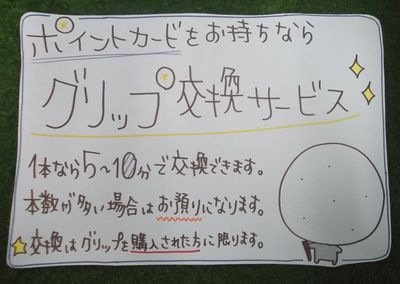 ポイントカードをお持ちなら
グリップ交換サービス
1本なら5〜10分で交換できます。
本数が多い場合はお預りになります。
交換はグリップを購入された方に限ります。